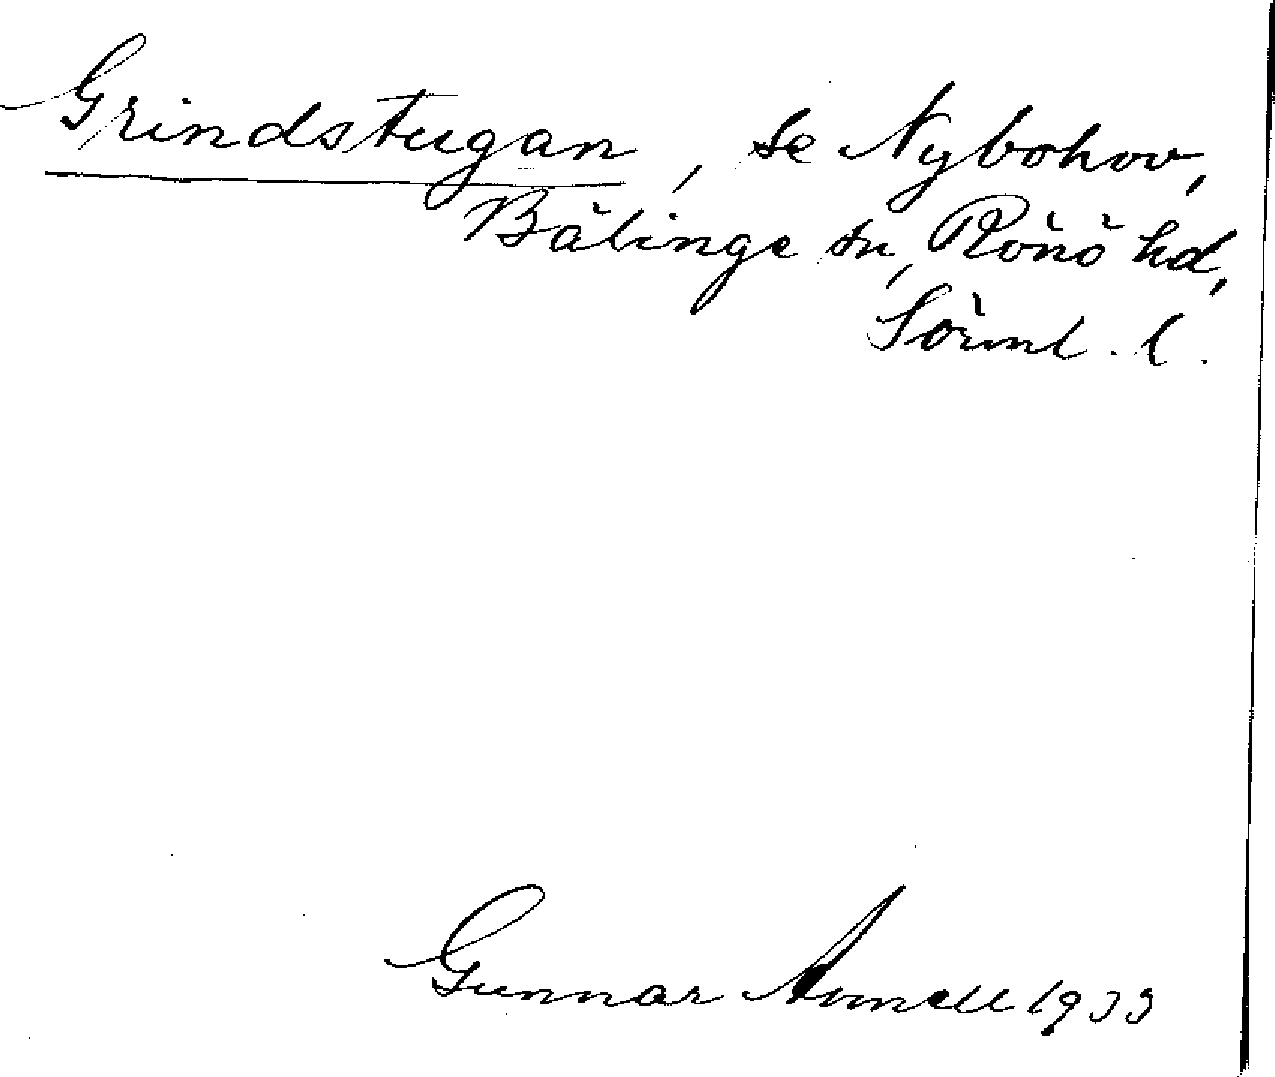 Grindstugan, se Nybohov,
Bälinge sn, Rönö hd,
Sörml. l.
Gunnar 1933